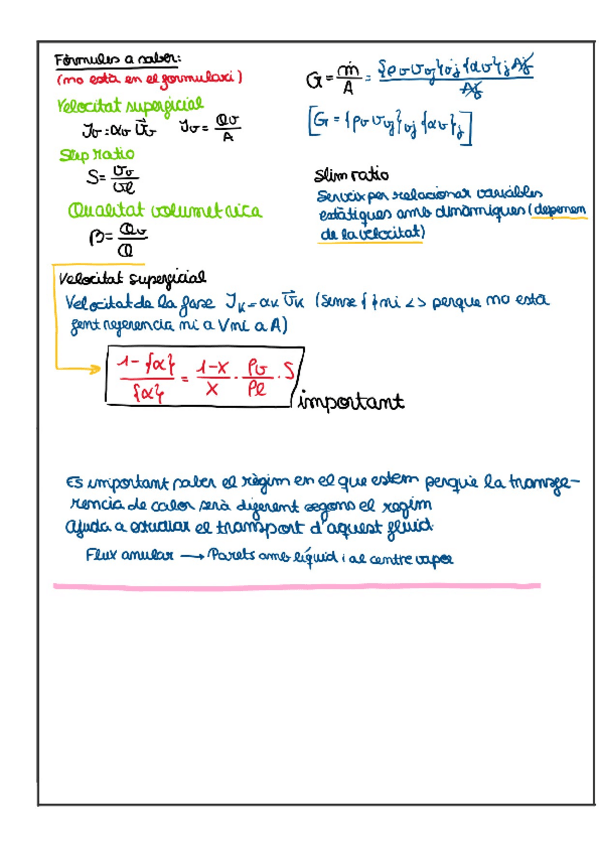 Fòrmules a saber:
(no està en el formulari)
Velocitat superficial
Jv = αv v̄v    Jv = Qv/A
Slip ratio
S = vv/vl
Qualitat volumetrica
β = Qv/Q
G = ṁ/A = {ρv vvj}vj {αv}j Aj / Aj
[G = {ρv vvj}vj {αv}j]
Slim ratio
Serveix per relacionar variables
estàtiques amb dinàmiques (depenen
de la velocitat)
Velocitat superficial
Velocitat de la fase Jk = αk v̄k (sense { } ni < > perque no està
fent referencia ni a V ni a A)
1-{α}/{α} = 1-x/x · ρv/ρl · S
important
Es important saber el règim en el que estem perquè la transfe-
rencia de calor serà diferent segons el regim
Ajuda a estudiar el transport d'aquest fluid.
Flux anular → Parets amb líquid i al centre vapor